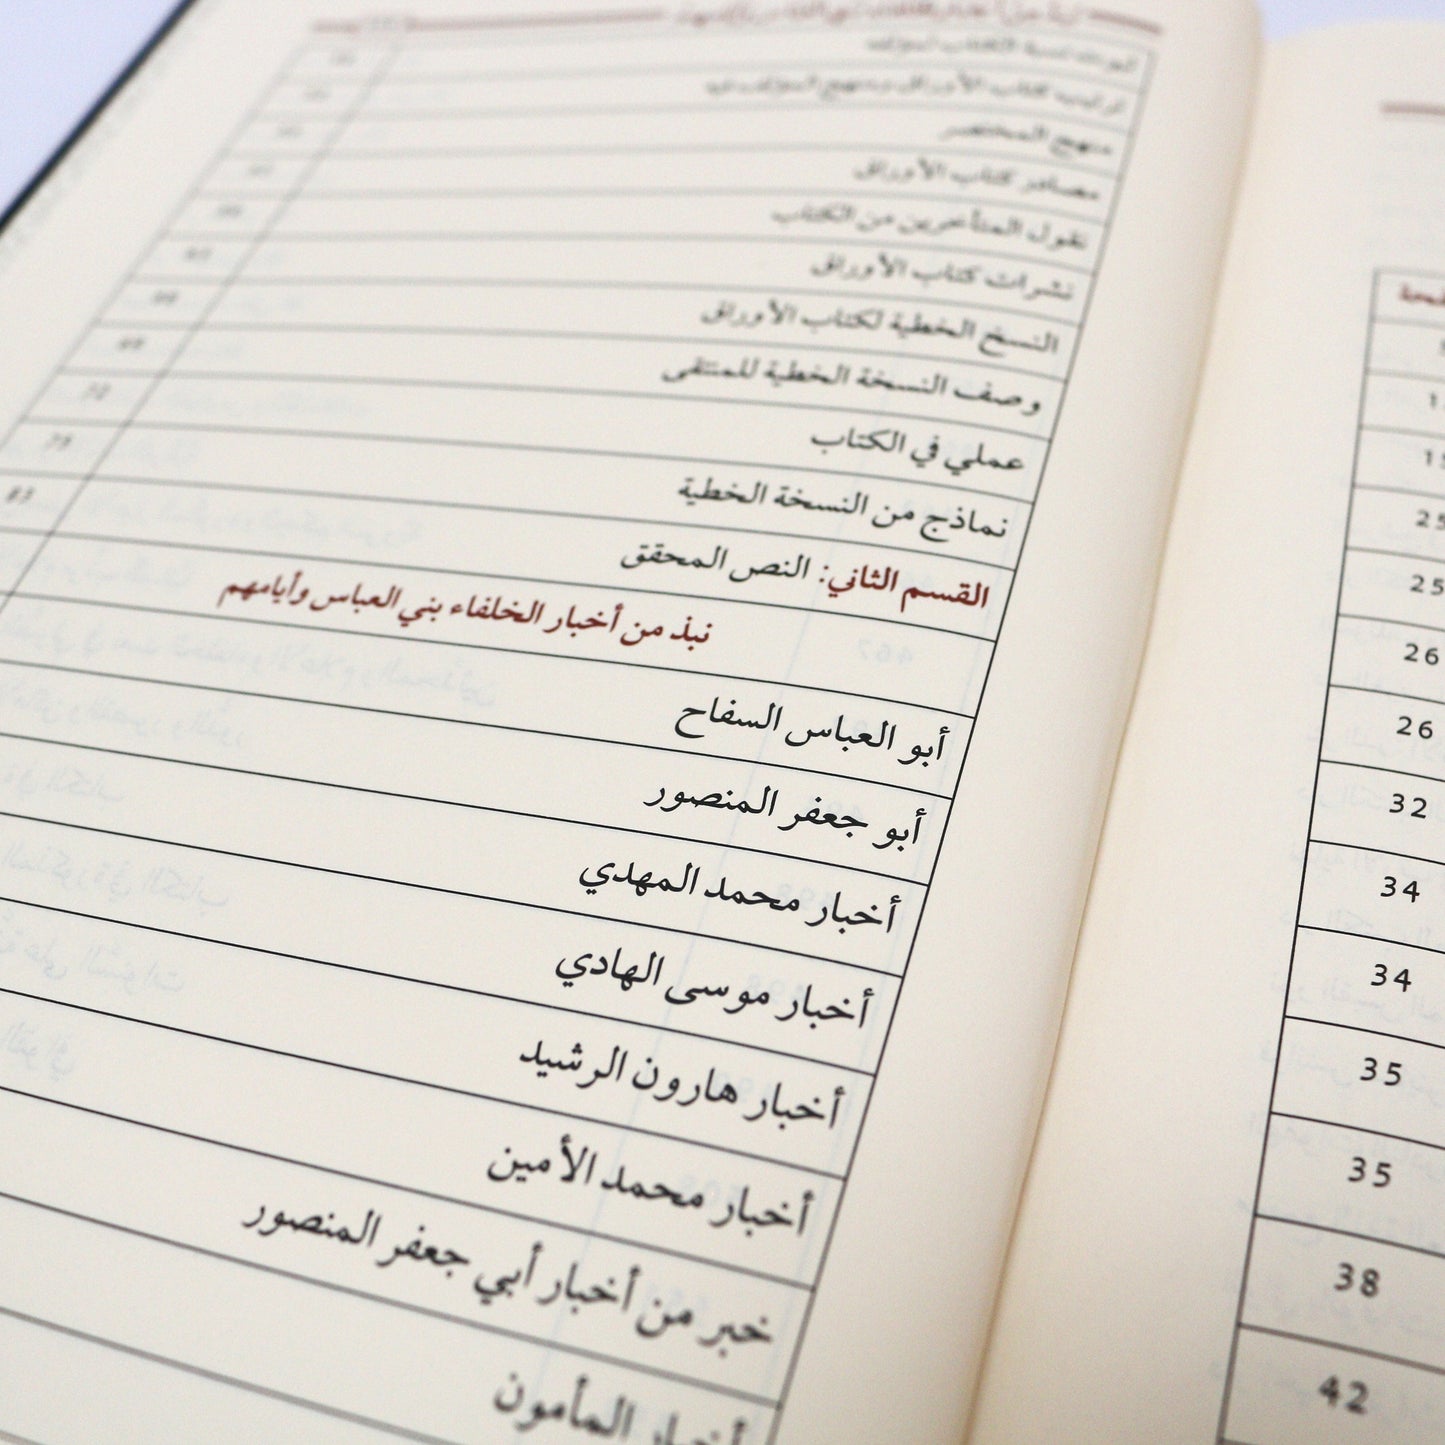 ترتيب كتاب الأوراق ومنهج المؤلف فيه
منهج المختصر
مصادر كتاب الأوراق
نقول المتأخرين من الكتاب
نشرات كتاب الأوراق
النسخ الخطية لكتاب الأوراق
وصف النسخة الخطية للمنتقى
عملي في الكتاب
نماذج من النسخة الخطية
القسم الثاني: النص المحقق
نبذ من أخبار الخلفاء بني العباس وأيامهم
أبو العباس السفاح
أبو جعفر المنصور
أخبار محمد المهدي
أخبار موسى الهادي
أخبار هارون الرشيد
أخبار محمد الأمين
خبر من أخبار أبي جعفر المنصور
أخبار المأمون
25
25
26
26
32
34
34
35
35
38
42